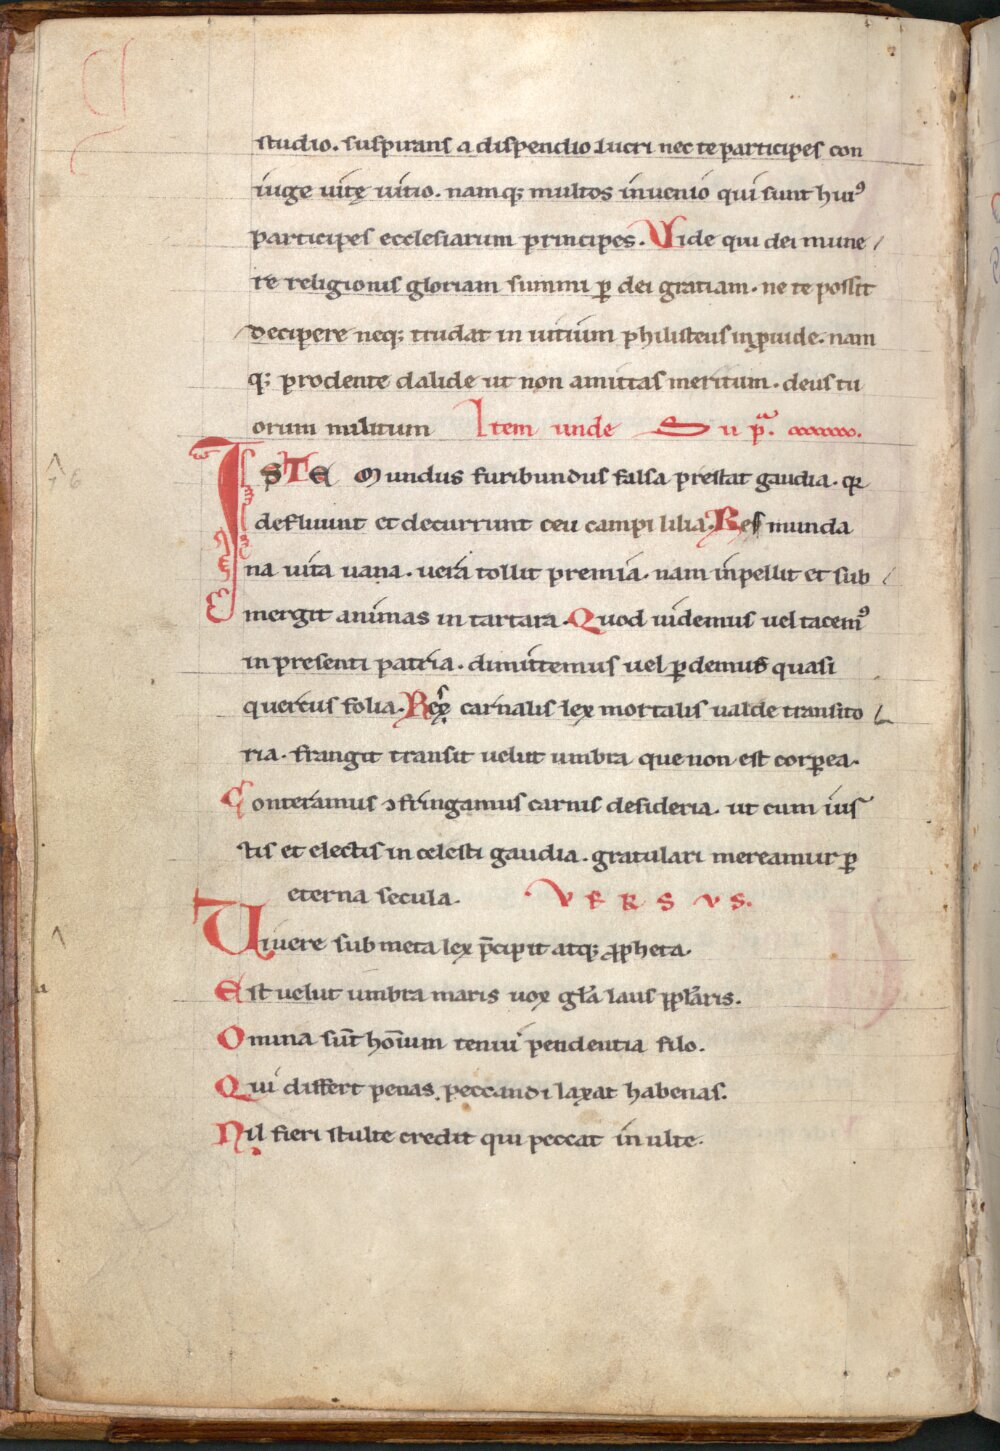 studio. suspirans a dispendio lucri nec te participes con
iuge uitę uitio. namq; multos inuenio qui sunt hui⁹
participes ecclesiarum principes. Vide qui dei mune
re religionis gloriam summi ꝑ dei gratiam. ne te possit
decipere neq; trudat in uitium philisteus inꝓuide. nam
q; prodente dalide ut non amittas meritum. deus tu
orum militum Item unde Sup͛ᵃ.
ISTE Mundus furibundus falsa prestat gaudia. que
defluunt et decurrunt ceu campi lilia. Res munda
na uita uana. uera tollit premia. nam inpellit et sub
mergit animas in tartara. Quod uidemus uel tacem⁹
in presenti patria. dimittemus uel ꝑdemus quasi
quercus folia. Rex carnalis lex mortalis ualde transito
ria. frangit transit uelut umbra que non est corꝑea.
Conteramus ↄfringamus carnis desideria. ut cum ius
tis et electis in celesti gaudia. gratulari mereamur ꝑ
eterna secula. VERSVS.
Viuere sub meta lex p̄cipit atq; ꝓpheta.
Est uelut umbra maris uox gl̄a laus pop̄laris.
Omnia sūt hoīum tenui pendentia filo.
Qui differt penas. peccandi laxat habenas.
Nil fieri stulte credit qui peccat inulte.